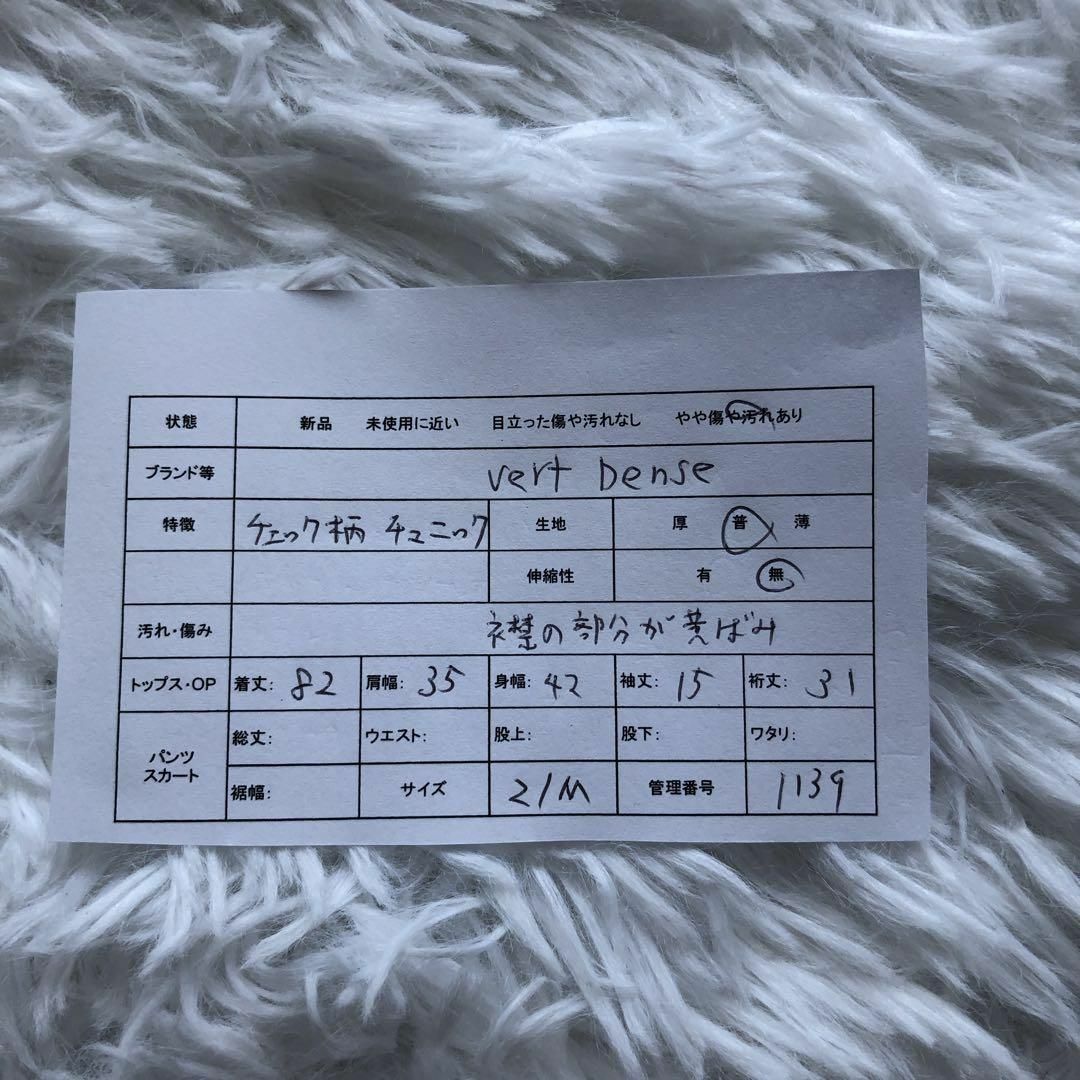 状態 新品 未使用に近い 目立った傷や汚れなし やや傷や汚れあり
ブランド等 vert Dense
特徴 チェック柄 チュニック 生地 厚 普 薄
伸縮性 有 無
汚れ・傷み 襟の部分が黄ばみ
トップス・OP 着丈: 82 肩幅: 35 身幅: 42 袖丈: 15 裄丈: 31
パンツ スカート 総丈: ウエスト: 股上: 股下: ワタリ:
裾幅: サイズ 2/M 管理番号 1139